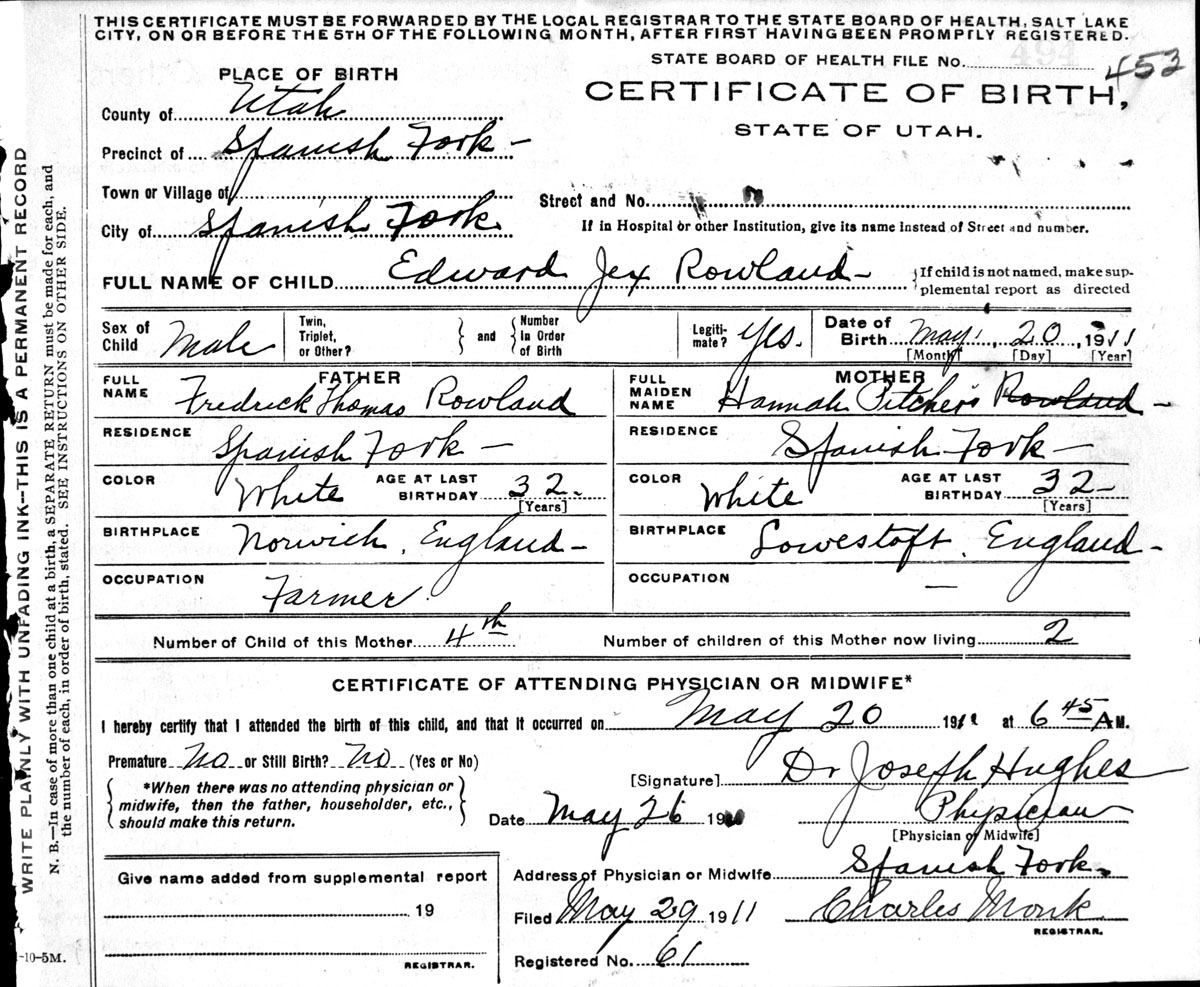 THIS CERTIFICATE MUST BE FORWARDED BY THE LOCAL REGISTRAR TO THE STATE BOARD OF HEALTH, SALT LAKE
CITY, ON OR BEFORE THE 5TH OF THE FOLLOWING MONTH, AFTER FIRST HAVING BEEN PROMPTLY REGISTERED.
STATE BOARD OF HEALTH FILE No. 494 453
PLACE OF BIRTH
CERTIFICATE OF BIRTH,
County of Utah
STATE OF UTAH.
Precinct of Spanish Fork -
Town or Village of
Street and No.
City of Spanish Fork
If in Hospital or other Institution, give its name instead of Street and number.
FULL NAME OF CHILD Edward Jex Rowland - {If child is not named, make sup-
plemental report as directed
Sex of Child Male
Twin, Triplet, or Other? } and { Number In Order of Birth
Legiti- mate? Yes.
Date of Birth May, 20, 1911
[Month] [Day] [Year]
FATHER
FULL NAME Fredrick Thomas Rowland
RESIDENCE Spanish Fork -
COLOR White AGE AT LAST BIRTHDAY 32. [Years]
BIRTHPLACE Norwich, England -
OCCUPATION Farmer.
MOTHER
FULL MAIDEN NAME Hannah Pitchers Rowland -
RESIDENCE Spanish Fork -
COLOR White AGE AT LAST BIRTHDAY 32 - [Years]
BIRTHPLACE Lowestoft, England -
OCCUPATION —
Number of Child of this Mother 4th Number of children of this Mother now living 2
CERTIFICATE OF ATTENDING PHYSICIAN OR MIDWIFE*
I hereby certify that I attended the birth of this child, and that it occurred on May 20 1911 at 6 45 A M.
Premature No or Still Birth? No (Yes or No)
{ *When there was no attending physician or
midwife, then the father, householder, etc.,
should make this return. }
[Signature] Dr Joseph Hughes
Date May 26 19
Physician
[Physician or Midwife]
Address of Physician or Midwife Spanish Fork.
Filed May 29 1911 Charles Monk
REGISTRAR.
Registered No. 61
Give name added from supplemental report
19
REGISTRAR.
WRITE PLAINLY WITH UNFADING INK--THIS IS A PERMANENT RECORD
N. B.—In case of more than one child at a birth, a SEPARATE RETURN must be made for each, and
the number of each, in order of birth, stated. SEE INSTRUCTIONS ON OTHER SIDE.
-10-5M.